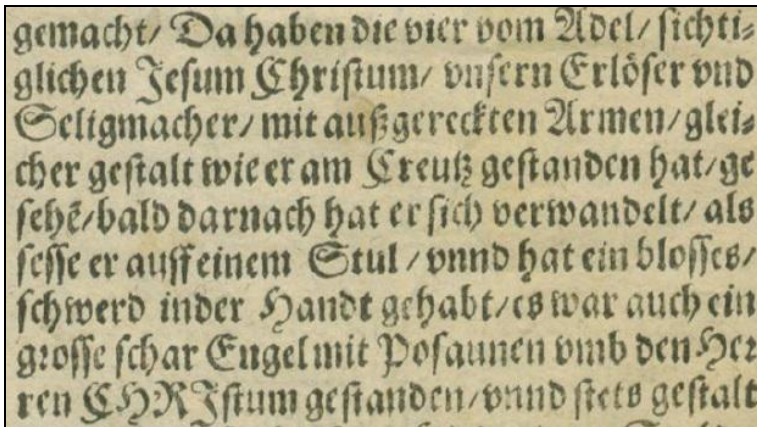 gemacht/ Da haben die vier vom Adel/ sichti⸗
glichen Jesum Christum/ vnsern Erlöser vnd
Seligmacher/ mit außgereckten Armen/ glei⸗
cher gestalt wie er am Creutz gestanden hat/ ge
sehẽ/ bald darnach hat er sich verwandelt/ als
sesse er auff einem Stul / vnnd hat ein blosses/
schwerd inder Handt gehabt/ es war auch ein
grosse schar Engel mit Posaunen vmb den Her
ren CHRJstum gestanden/ vnnd stets gestalt